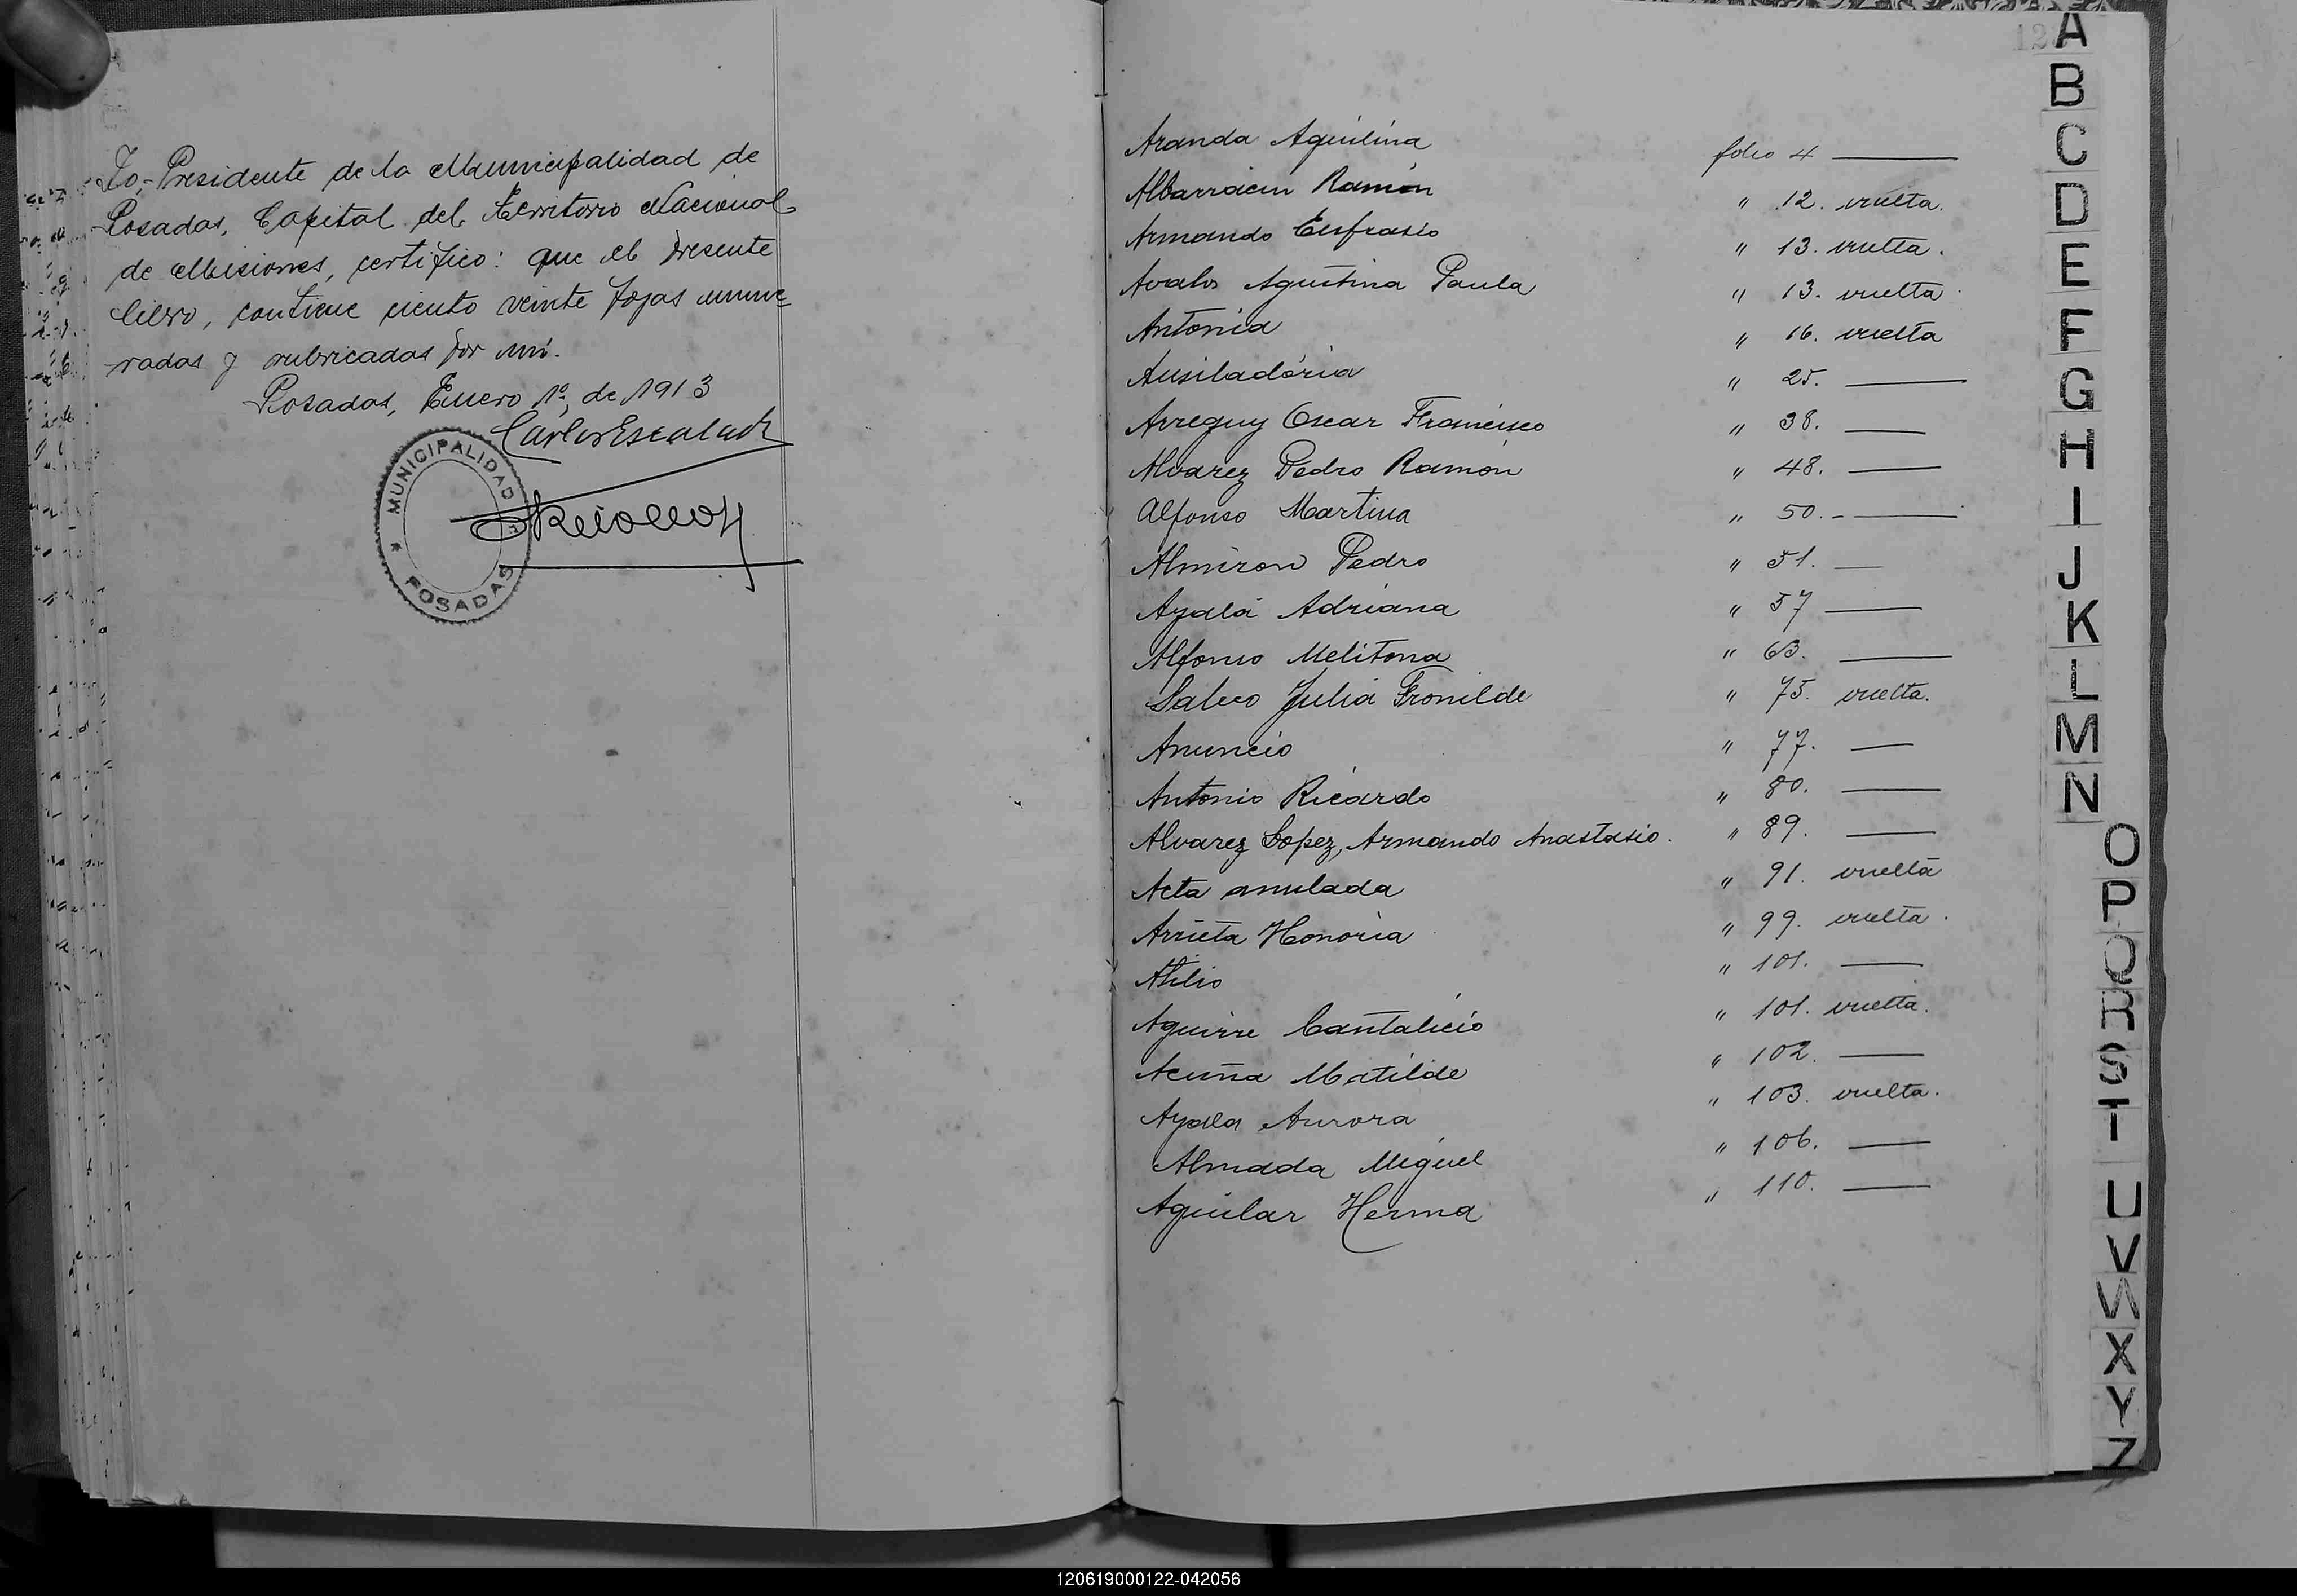 Yo, Presidente de la Municipalidad de
Posadas, Capital del Territorio Nacional
de Misiones, certifico: que el presente
libro, contiene ciento veinte fojas nume-
radas y rubricadas por mi.
Posadas, Enero 1º, de 1913
MUNICIPALIDAD
POSADAS
Aranda Aquilina folio 4
Albarracin Ramón " 12. vuelta.
Armando Eufrasio " 13. vuelta.
Avalos Agustina Paula " 13. vuelta.
Antonia " 16. vuelta
Ausiladória " 25.
Arreguy Oscar Francisco " 38.
Alvarez Pedro Ramón " 48.
Alfonso Martina " 50.-
Almiron Pedro " 51.
Ayala Adriana " 57
Alfonso Melitona " 63.
Salvo Julia Fronilde " 75. vuelta.
Anuncio " 77.
Antonio Ricardo " 80.
Alvarez Lopez, Armando Anastasio. " 89.
Acta anulada " 91. vuelta
Arrieta Honoria " 99. vuelta.
Atilio " 101.
Aguirre Cantalicio " 101. vuelta.
Acuña Matilde " 102.
Ayala Aurora " 103. vuelta.
Almada Miguel " 106.
Aguilar Herma " 110.
A
B
C
D
E
F
G
H
I
J
K
L
M
N
O
P
Q
R
S
T
U
V
W
X
Y
Z
120619000122-042056